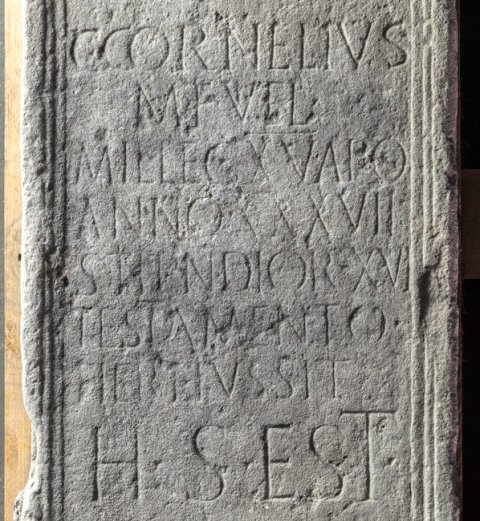 C·CORNELIVS
M·F·VEL·
MIL·LEG·XV·APO
ANNO·XXXVII
STIPENDIOR·XVI
TESTAMENTO·
FIERI·IVSSIT
H·S·EST